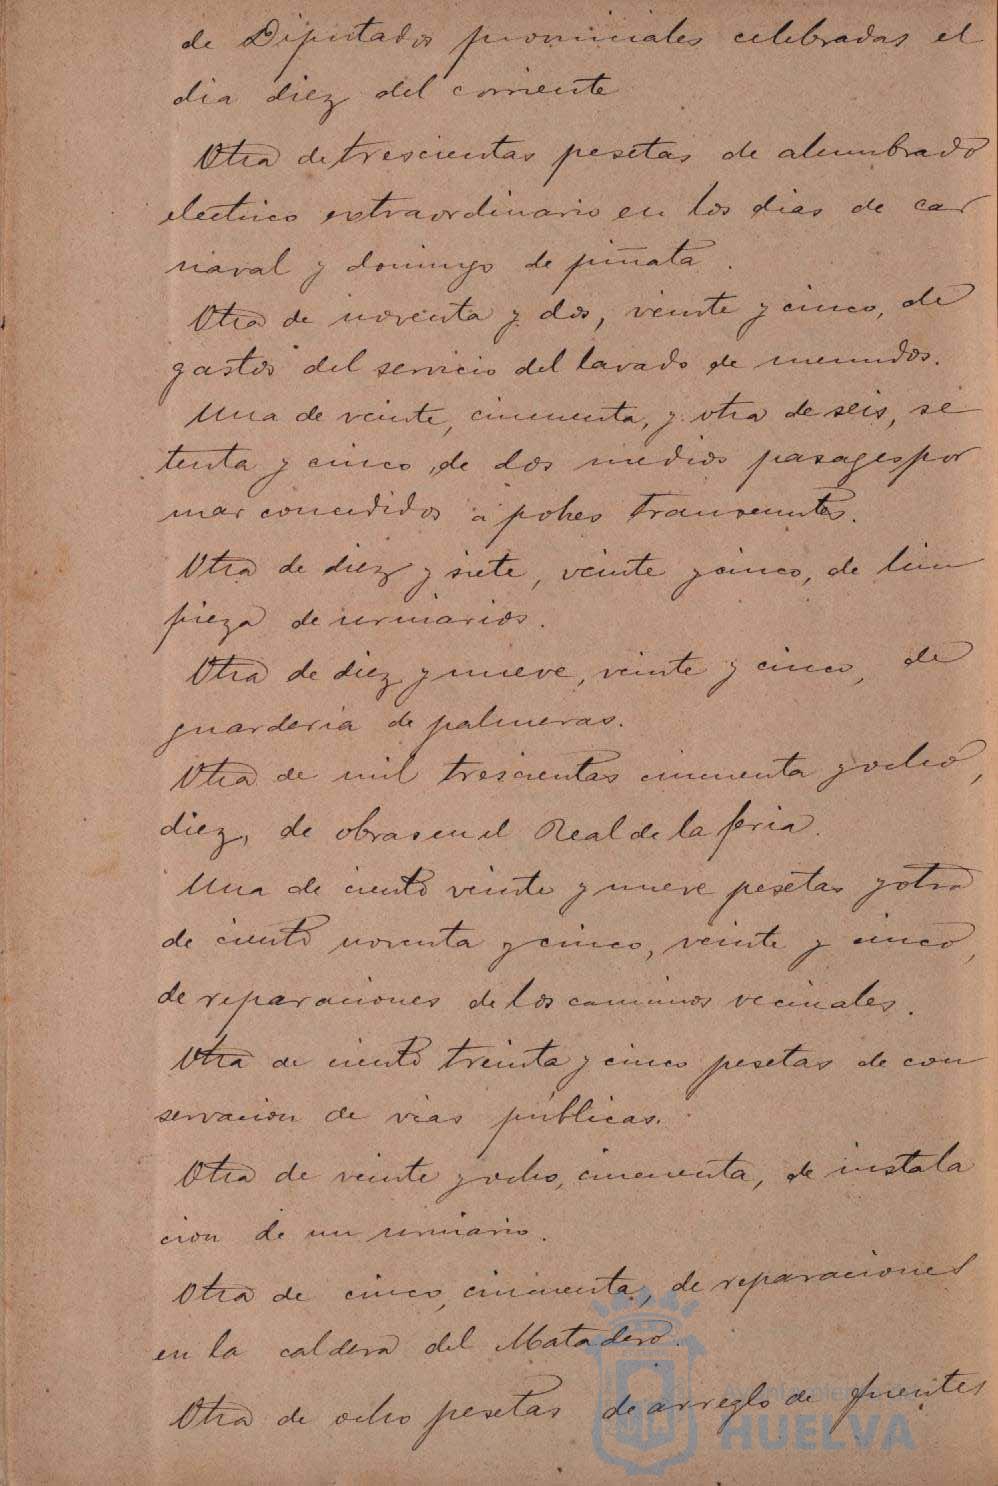 de Diputados provinciales celebradas el
dia diez del corriente
Otra de trescientas pesetas de alumbrado
electrico extraordinario en los dias de car
naval y domingo de piñata.
Otra de noventa y dos, veinte y cinco, de
gastos del servicio del lavado de menudos.
Una de veinte, cincuenta, y otra de seis, se
tenta y cinco, de dos medios pasages por
mar concedidos á pobres transeuntes.
Otra de diez y siete, veinte y cinco, de lim
pieza de urinarios.
Otra de diez y nueve, veinte y cinco, de
guarderia de palmeras.
Otra de mil trescientas cincuenta y ocho,
diez, de obras en el Real de la feria.
Una de ciento veinte y nueve pesetas y otra
de ciento noventa y cinco, veinte y cinco,
de reparaciones de los caminos vecinales.
Otra de ciento treinta y cinco pesetas de con
servacion de vias públicas.
Otra de veinte y ocho, cincuenta, de instala
cion de un urinario.
Otra de cinco, cincuenta, de reparaciones
en la caldera del Matadero.
Otra de ocho pesetas de arreglo de fuentes
Ayuntamiento de
HUELVA